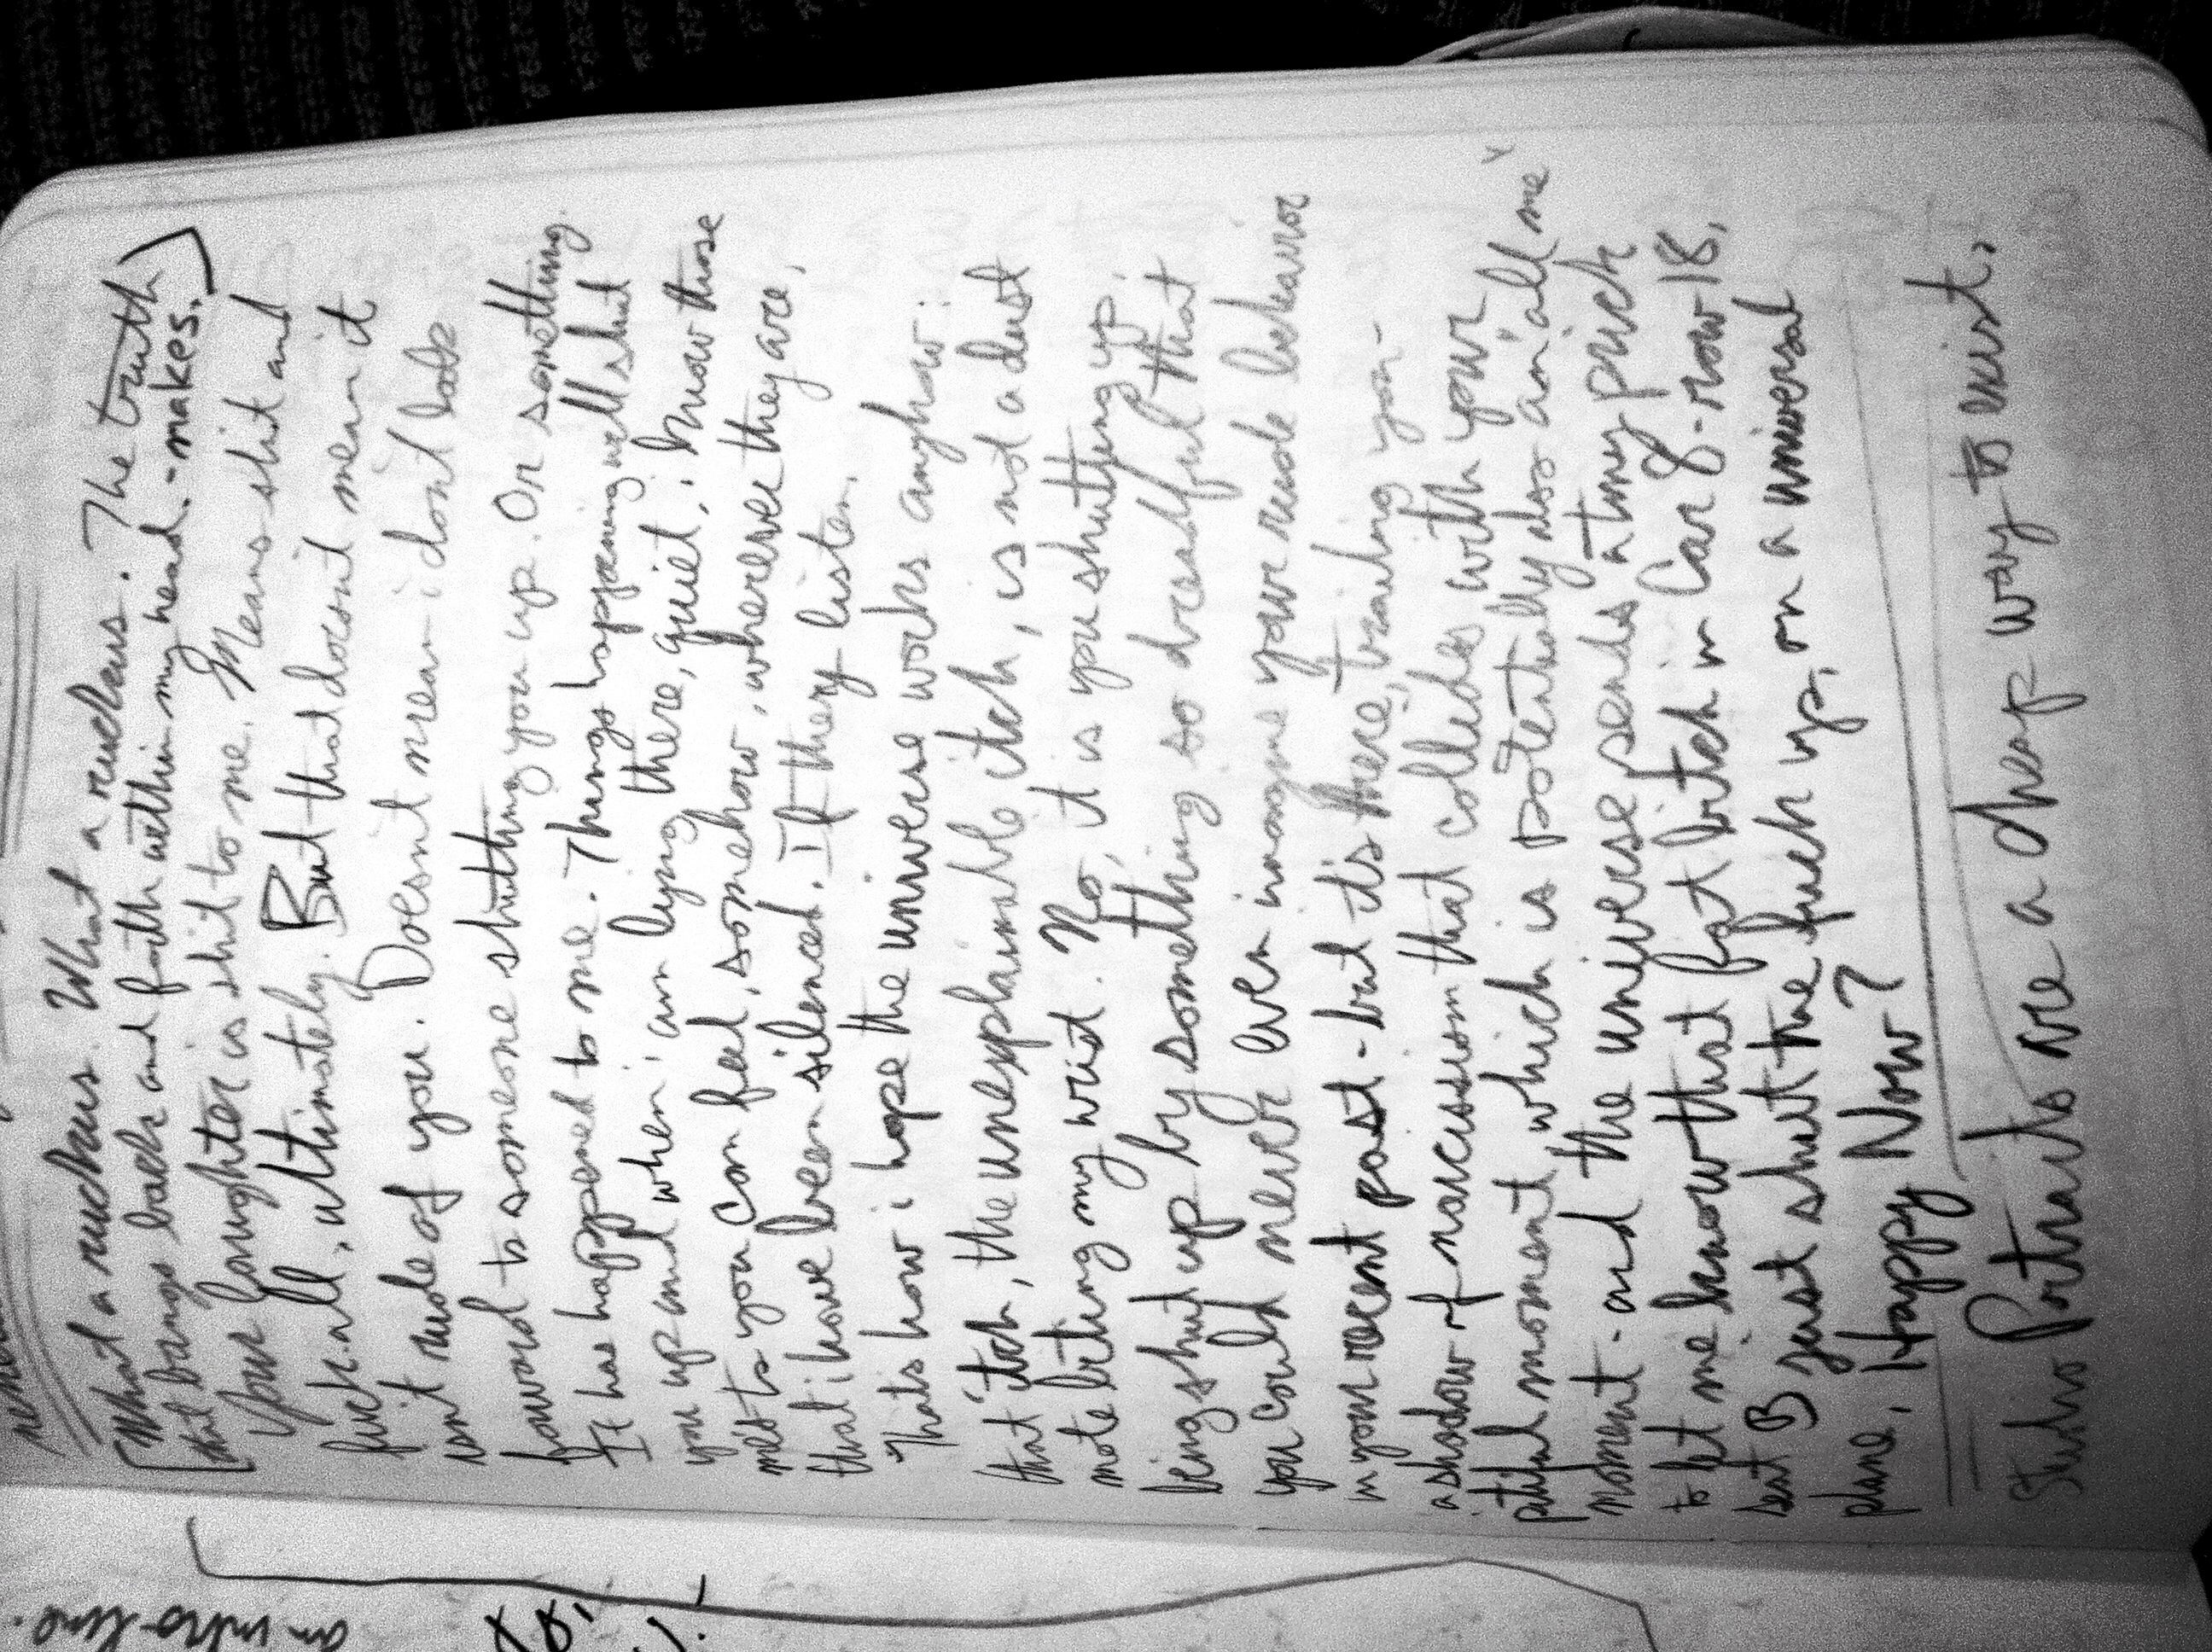 [What a ruckus. What a ruckus. The truth
that bangs back and forth within my head. - makes.]
Your laughter is shit to me. Means shit and
fuck-all, ultimately. But that doesnt mean it
isn't rude of you. Doesnt mean i dont look
forward to someone shutting you up. Or something.
It has happened to me. Things happening will shut
you up and when i am lying there, quiet, i know those
mts to you can feel, somehow, wherever they are,
that i have been silenced. If they listen.
Thats how i hope the universe works anyhow:
that itch, the unexplainable itch, is not a dust
mote biting my wrist. No, it is you shutting up;
being shut up by something so dreadful that
you could never even imagine your rude behavior
in your recent past - but it's there, trailing you -
a shadow of narcissism that collides with your
pitiful moment which is potentially also an "all me"
moment - and the universe sends a tiny prick
to let me know that fat bitch in Car 8 - row 18,
seat B just shut the fuck up, on a universal
plane, Happy Now?
Studio Portraits are a cheap way to exist.
an intro-line.